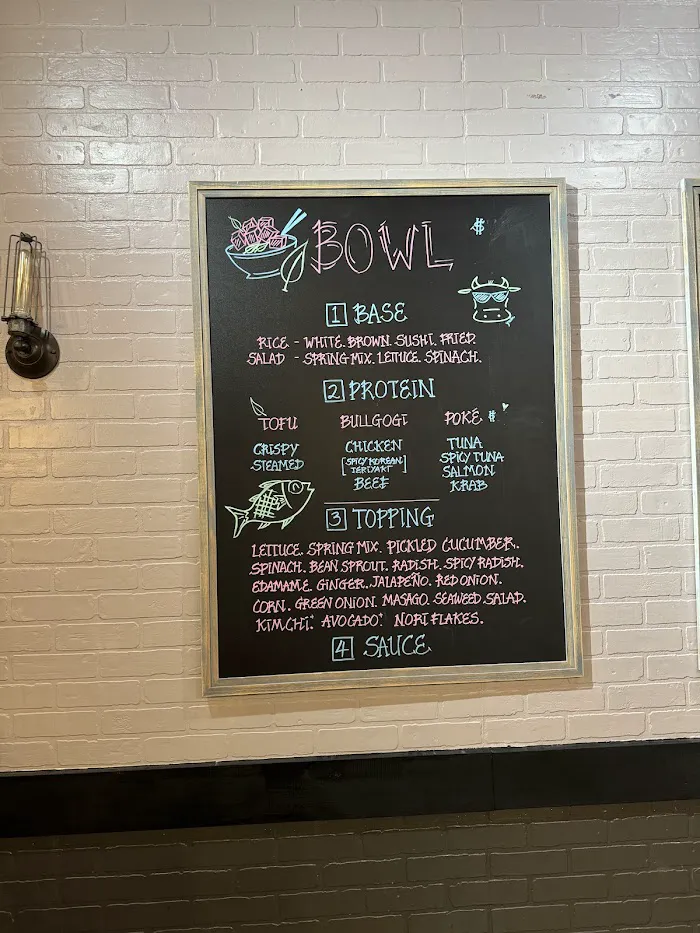 BOWL $
1 BASE
RICE - WHITE. BROWN. SUSHI. FRIED.
SALAD - SPRING MIX. LETTUCE. SPINACH.
2 PROTEIN
TOFU BULLGOGI POKE $
CRISPY
STEAMED
CHICKEN
[SPICY KOREAN
TERIYAKI]
BEEF
TUNA
SPICY TUNA
SALMON
KRAB
3 TOPPING
LETTUCE. SPRING MIX. PICKLED CUCUMBER.
SPINACH. BEAN SPROUT. RADISH. SPICY RADISH.
EDAMAME. GINGER. JALAPEÑO. RED ONION.
CORN. GREEN ONION. MASAGO. SEAWEED SALAD.
KIMCHI* AVOCADO* NORI FLAKES.
4 SAUCE